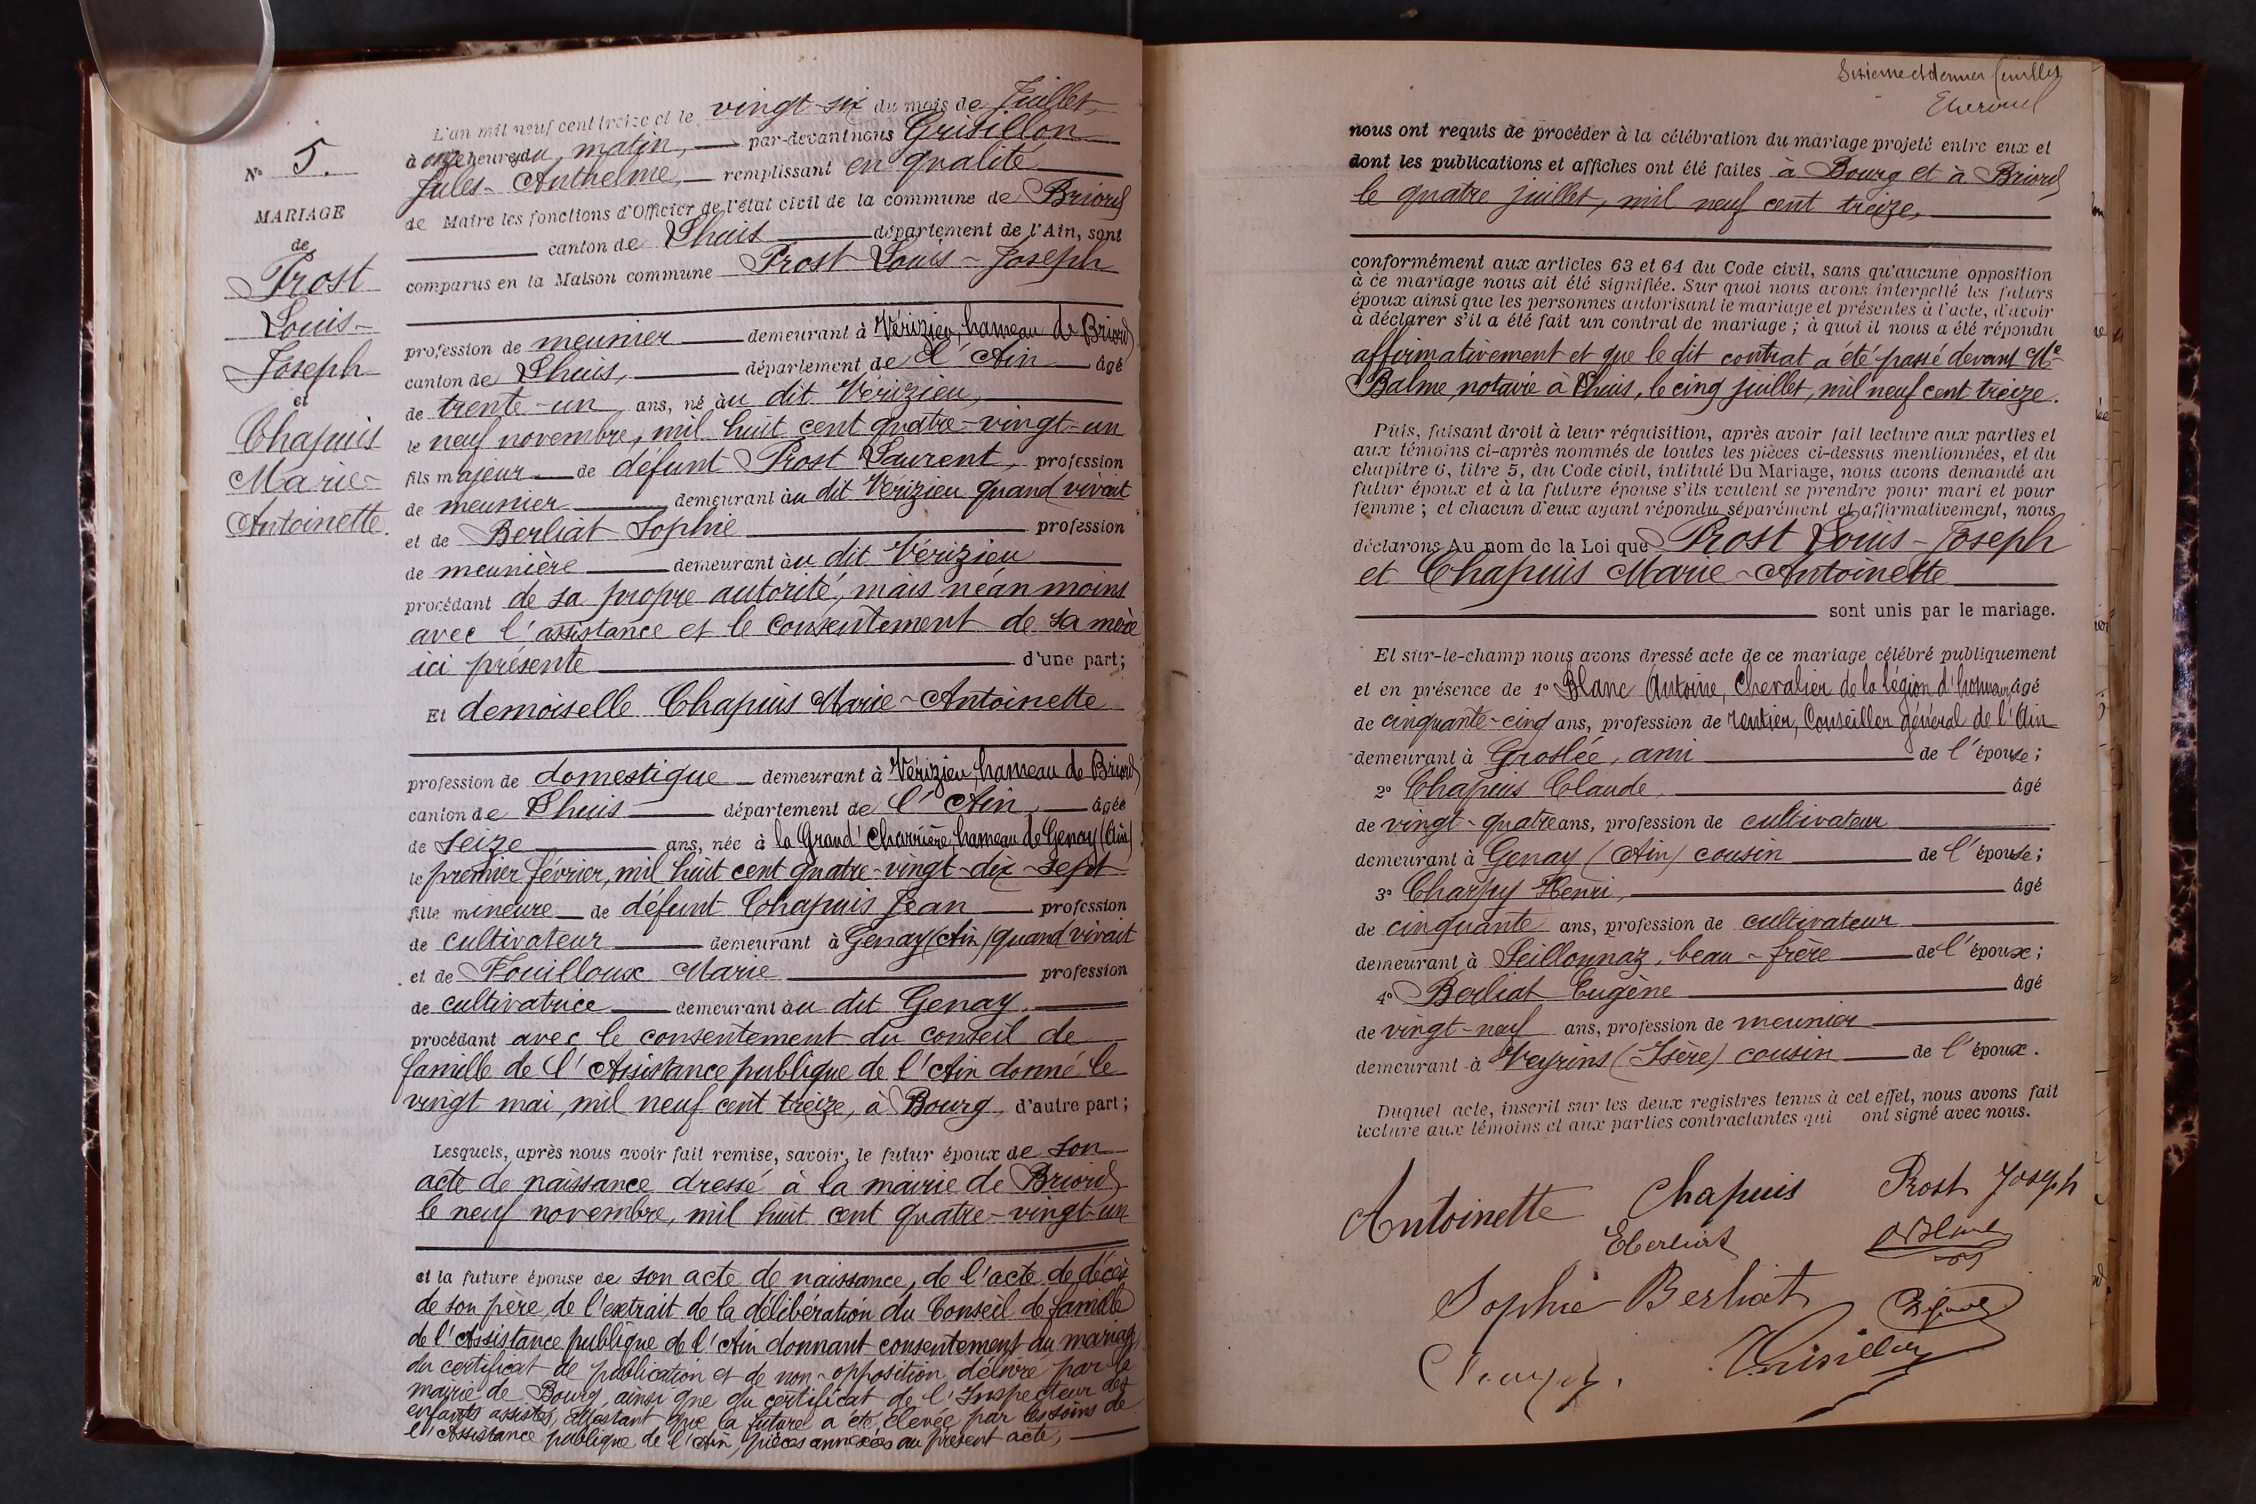 N° 5.
MARIAGE
de
Prost
Louis-
Joseph
et
Chapuis
Marie-
Antoinette.
L'an mil neuf cent treize et le vingt-six du mois de Juillet,
à onze heures du matin, par-devant nous Grisillon
Jules-Anthelme, remplissant en qualité
de Maire les fonctions d'Officier de l'état civil de la commune de Briord
canton de Lhuis département de l'Ain, sont
comparus en la Maison commune Prost Louis-Joseph
profession de meunier demeurant à Vérizieu, hameau de Briord
canton de Lhuis, département de l'Ain âgé
de trente-un ans, né au dit Vérizieu,
le neuf novembre, mil huit cent quatre-vingt-un
fils majeur de défunt Prost Laurent, profession
de meunier demeurant au dit Vérizieu quand vivait
et de Berliat Sophie profession
de meunière demeurant au dit Vérizieu
procédant de sa propre autorité, mais néanmoins
avec l'assistance et le consentement de sa mère
ici présente d'une part;
Et demoiselle Chapuis Marie-Antoinette
profession de domestique demeurant à Vérizieu, hameau de Briord
canton de Lhuis département de l'Ain, âgée
de seize ans, née à la Grand'Charrière, hameau de Genay (Ain)
le premier février, mil huit cent quatre-vingt-dix-sept
fille mineure de défunt Chapuis Jean profession
de cultivateur demeurant à Genay (Ain) quand vivait
et de Fouilloux Marie profession
de cultivatrice demeurant au dit Genay.
procédant avec le consentement du conseil de
famille de l'Assistance publique de l'Ain donné le
vingt mai, mil neuf cent treize, à Bourg d'autre part;
Lesquels, après nous avoir fait remise, savoir, le futur époux de son
acte de naissance dressé à la mairie de Briord
le neuf novembre, mil huit cent quatre-vingt-un
et la future épouse de son acte de naissance, de l'acte de décès
de son père, de l'extrait de la délibération du Conseil de famille
de l'Assistance publique de l'Ain donnant consentement au mariage
du certificat de publication et de non-opposition délivré par la
mairie de Bourg, ainsi que du certificat de l'Inspecteur des
enfants assistés, attestant que la future a été élevée par les soins de
l'Assistance publique de l'Ain, pièces annexées au présent acte,
Sixième et dernier feuillet
nous ont requis de procéder à la célébration du mariage projeté entre eux et
dont les publications et affiches ont été faites à Bourg et à Briord
le quatre juillet, mil neuf cent treize,
conformément aux articles 63 et 64 du Code civil, sans qu'aucune opposition
à ce mariage nous ait été signifiée. Sur quoi nous avons interpellé les futurs
époux ainsi que les personnes autorisant le mariage et présentes à l'acte, d'avoir
à déclarer s'il a été fait un contrat de mariage; à quoi il nous a été répondu
affirmativement et que le dit contrat a été passé devant Me
Balme, notaire à Lhuis, le cinq juillet, mil neuf cent treize.
Puis, faisant droit à leur réquisition, après avoir fait lecture aux parties et
aux témoins ci-après nommés de toutes les pièces ci-dessus mentionnées, et du
chapitre 6, titre 5, du Code civil, intitulé Du Mariage, nous avons demandé au
futur époux et à la future épouse s'ils veulent se prendre pour mari et pour
femme; et chacun d'eux ayant répondu séparément et affirmativement, nous
déclarons Au nom de la Loi que Prost Louis-Joseph
et Chapuis Marie-Antoinette
sont unis par le mariage.
Et sur-le-champ nous avons dressé acte de ce mariage célébré publiquement
et en présence de 1° Blanc Antoine, Chevalier de la légion d'honneur âgé
de cinquante-cinq ans, profession de rentier, Conseiller général de l'Ain
demeurant à Groslée, ami de l'épouse;
2° Chapuis Claude, âgé
de vingt-quatre ans, profession de cultivateur
demeurant à Genay (Ain) cousin de l'épouse;
3° Charpy Henri, âgé
de cinquante ans, profession de cultivateur
demeurant à Seillonnaz, beau-frère de l'époux;
4° Berliat Eugène âgé
de vingt-neuf ans, profession de meunier
demeurant à Veyrins (Isère) cousin de l'époux.
Duquel acte, inscrit sur les deux registres tenus à cet effet, nous avons fait
lecture aux témoins et aux parties contractantes qui ont signé avec nous.
Antoinette Chapuis Prost Joseph
EBerliat ABlanc
Sophie Berliat
Grisillon